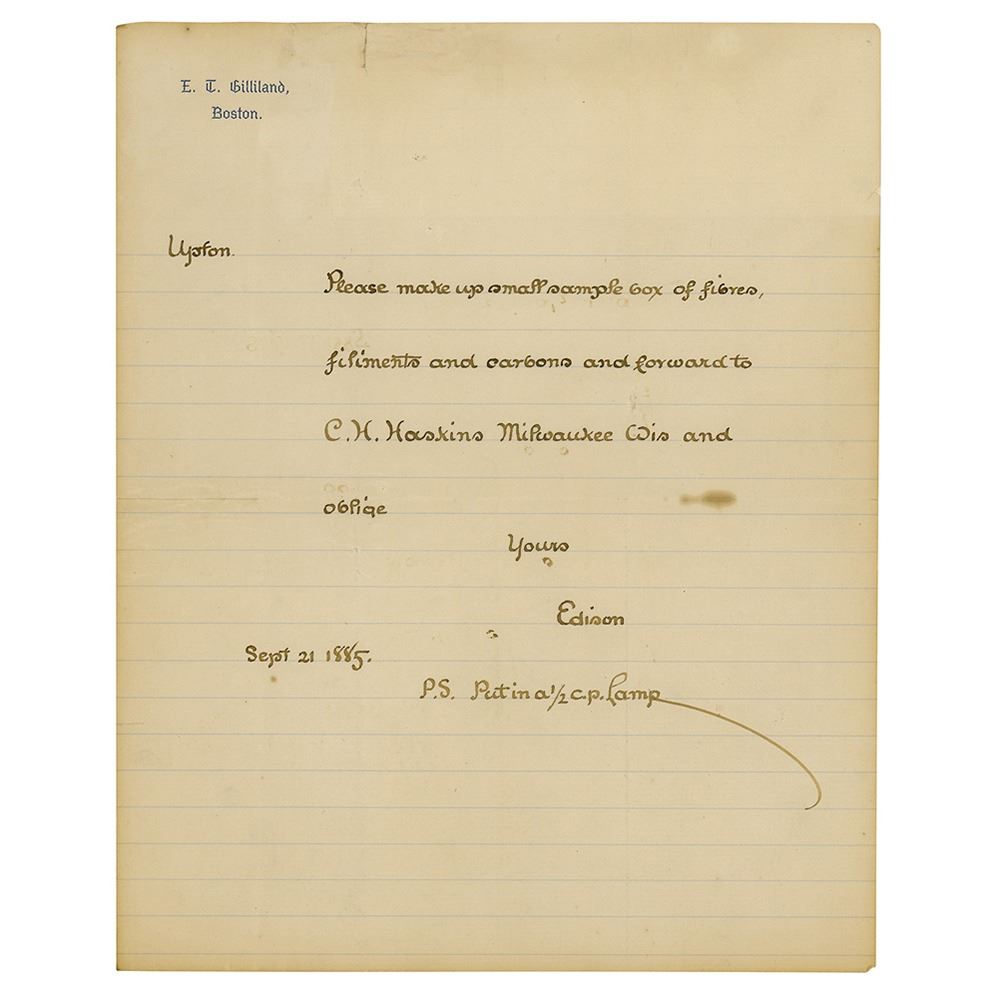 E. T. Gilliland,
Boston.
Upton.
Please make up small sample box of fibres,
filiments and carbons and forward to
C. H. Haskins Milwaukee Wis and
oblige
Yours
Edison
Sept 21 1885.
P.S. Put in a 1/2 c.p. lamp